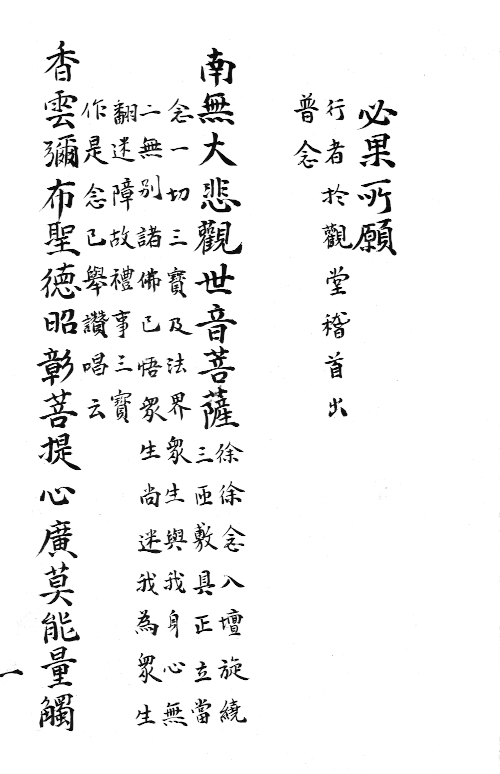 必果所願
行者於觀堂稽首出
普念
南無大悲觀世音菩薩
徐徐念入壇旋繞
三匝敷具正立當
念一切三寶及法界眾生與我身心無
二無別諸佛已悟眾生尚迷我為眾生
翻迷障故禮事三寶
作是念已舉讚唱云
香雲彌布聖德昭彰菩提心廣莫能量觸
一